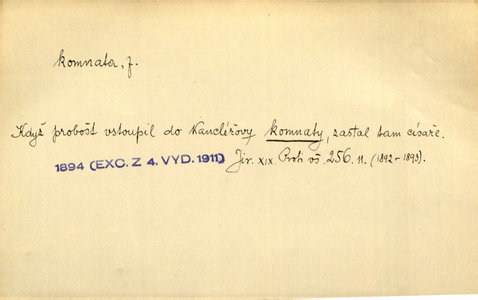 komnata, f.
Když probošt vstoupil do kancléřovy komnaty, zastal tam císaře.
1894 (EXC. Z 4. VYD. 1911) Jir. XIX. Proti vš. 256. n. (1892-1893).